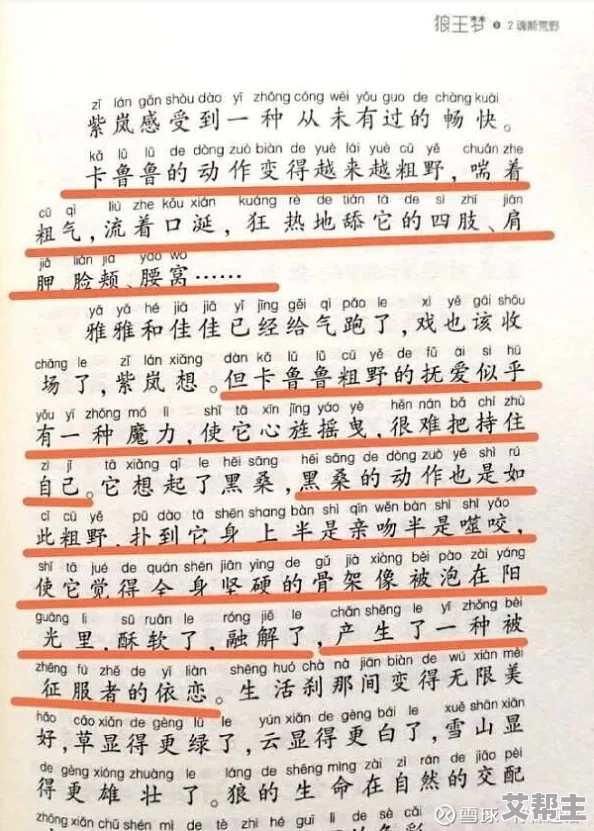 狼王梦 2 魂断荒野
zǐ lán gǎn shòu dào yī zhǒng cóng wèi yǒu guo de chàng kuài
紫岚感受到一种从未有过的畅快。
kǎ lǔ lǔ de dòng zuò biàn de yuè lái yuè cū yě chuǎn zhe
卡鲁鲁的动作变得越来越粗野，喘着
cū qì liú zhe kǒu xián kuáng rè de tiǎn tā de sì zhī jiān
粗气，流着口涎，狂热地舔它的四肢、肩
jiǎ liǎn jiá yāo wō
胛、脸颊、腰窝……
yǎ yǎ hé jiā jiā yǐ jīng gěi qì pǎo le xì yě gāi shōu
雅雅和佳佳已经给气跑了，戏也该收
chǎng le zǐ lán xiǎng dàn kǎ lǔ lǔ cū yě de fǔ ài sì hū
场了，紫岚想。但卡鲁鲁粗野的抚爱似乎
yǒu yī zhǒng mó lì shǐ tā xīn jīng yáo yè hěn nán bǎ chí zhù
有一种魔力，使它心旌摇曳，很难把持住
zì jǐ tā xiǎng qǐ le hēi sāng hēi sāng de dòng zuò yě shì rú
自己。它想起了黑桑，黑桑的动作也是如
cǐ cū yě pū dào tā shēn shang bàn shì qīn wěn bàn shì shì yǎo
此粗野，扑到它身上半是亲吻半是噬咬，
shǐ tā jué de quán shēn jiān yìng de gǔ jià xiàng bèi pào zài yáng
使它觉得全身坚硬的骨架像被泡在阳
guāng li sū ruǎn le róng jiě le chǎn shēng le yī zhǒng bèi
光里，酥软了，融解了，产生了一种被
zhēng fú zhě de yī liàn shēng huó chà nà jiān biàn de wú xiàn měi
征服者的依恋。生活刹那间变得无限美
hǎo cǎo xiǎn de gèng lǜ le yún xiǎn de gèng bái le xuě shān xiǎn
好，草显得更绿了，云显得更白了，雪山显
de gèng xióng zhuàng le láng de shēng mìng zài zì rán de jiāo pèi
得更雄壮了。狼的生命在自然的交配
雪球
艾帮主